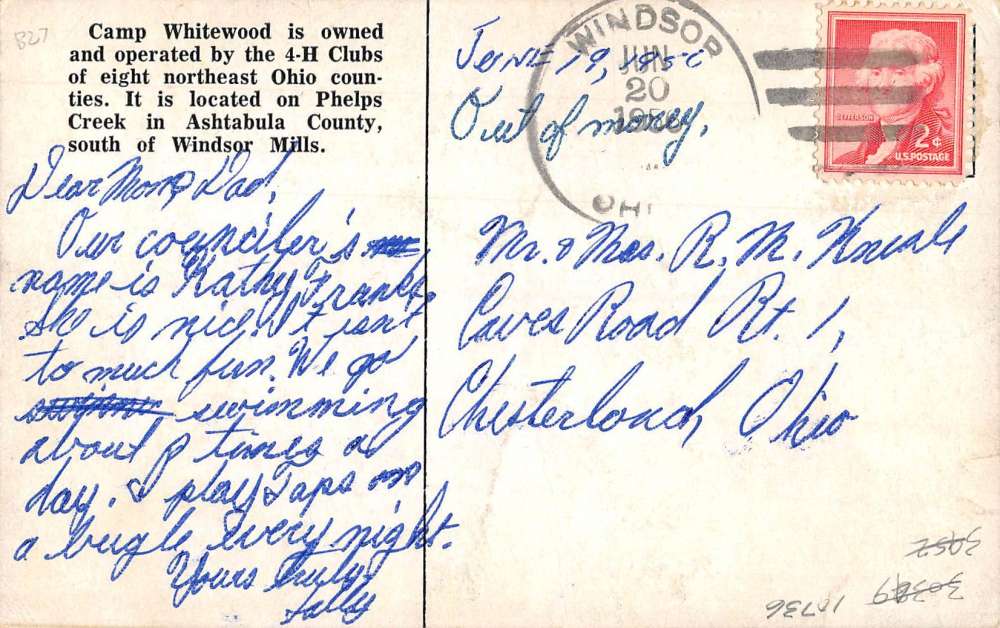 827
Camp Whitewood is owned
and operated by the 4-H Clubs
of eight northeast Ohio coun-
ties. It is located on Phelps
Creek in Ashtabula County,
south of Windsor Mills.
Dear Mom & Dad,
Our counciler's
name is Kathy Frank
she is nice. It isn't
to much fun. We go
swimming
about 8 times a
day. I play Taps on
a bugle every night.
Yours truly
Sally
June 19, 1956
Out of money.
WINDSOR
JUN
20
1956
OHI
JEFFERSON
2¢
U.S.POSTAGE
Mr. & Mrs. R. M. Kneale
Caves Road Rt. 1,
Chesterland, Ohio
10736